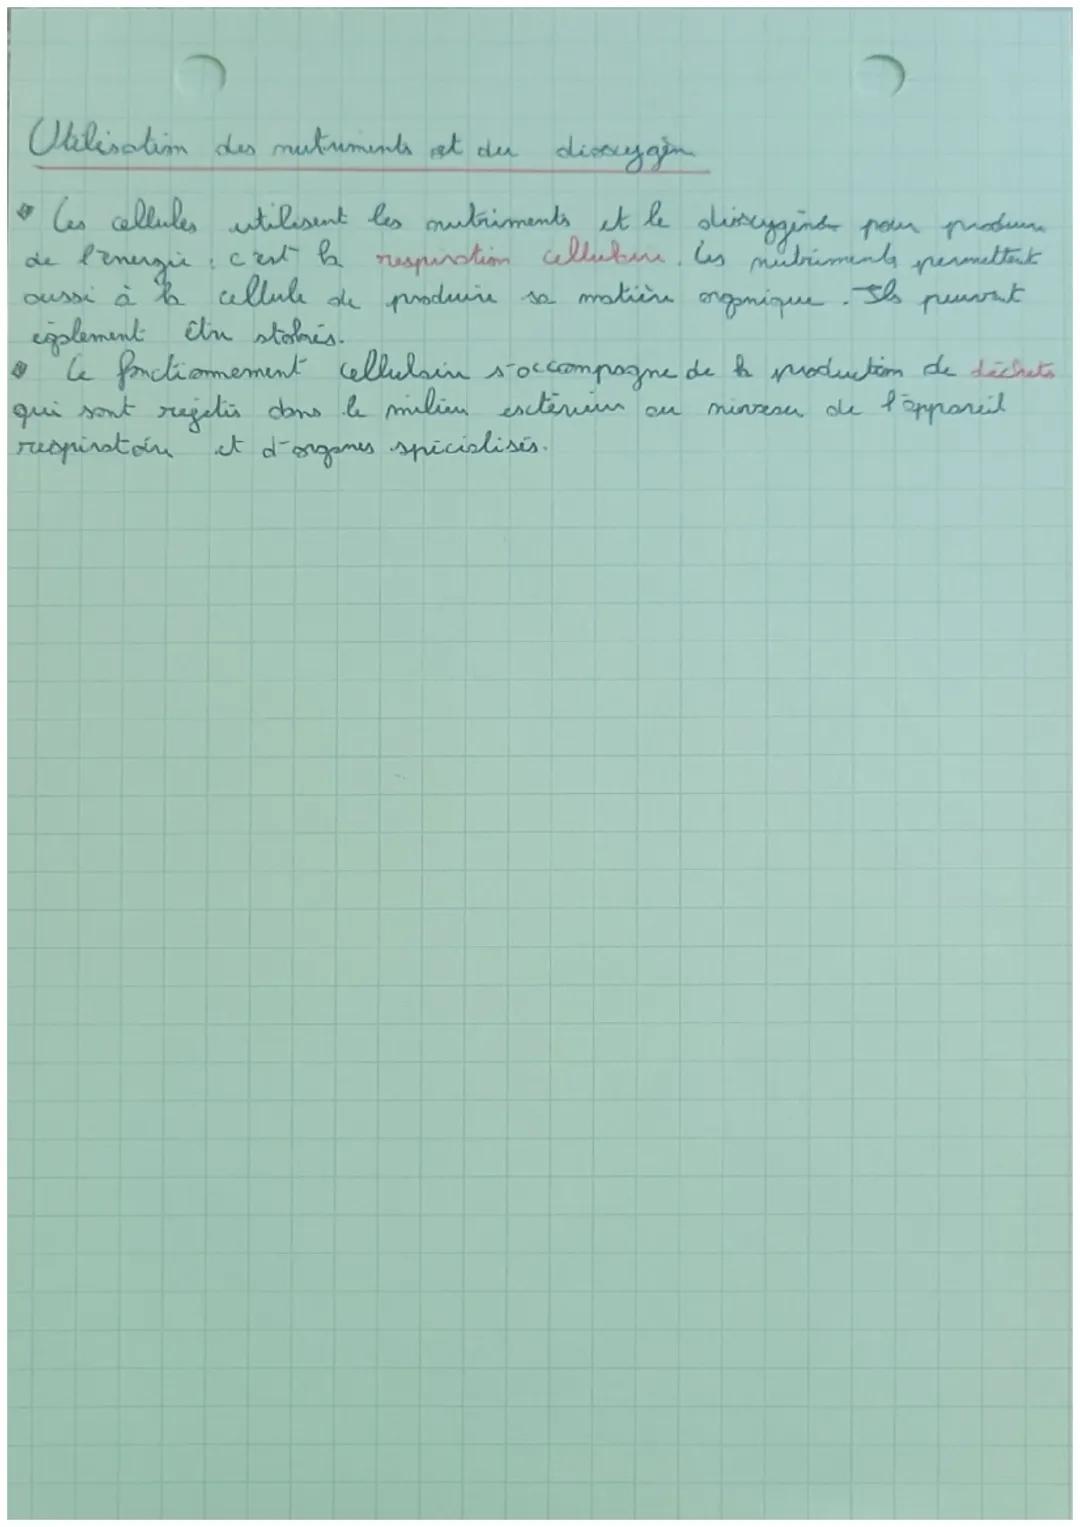 Utilisation des nutriments et du dioxygène
Les cellules utilisent les nutriments et le dioxygène pour produire
de l'énergie : c'est la respiration cellulaire. Les nutriments permettent
aussi à la cellule de produire sa matière organique. Ils peuvent
également être stockés.
Le fonctionnement cellulaire s'accompagne de la production de déchets
qui sont rejetés dans le milieu extérieur au niveau de l'appareil
respiratoire et d'organes spécialisés.